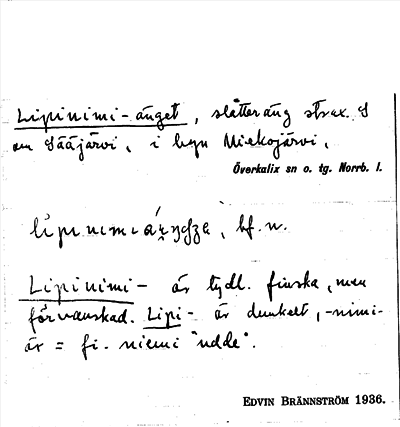 Lipinimi-änget, slåtteräng strax S
om Sääjärvi, i byn Miekojärvi.
Överkalix sn o. tg. Norrb. l.
bf. n.
Lipinimi- är tydl. finska, men
förvanskad. Lipi- är dunkelt, -nimi-
är = fi. niemi "udde".
EDVIN BRÄNNSTRÖM 1936.